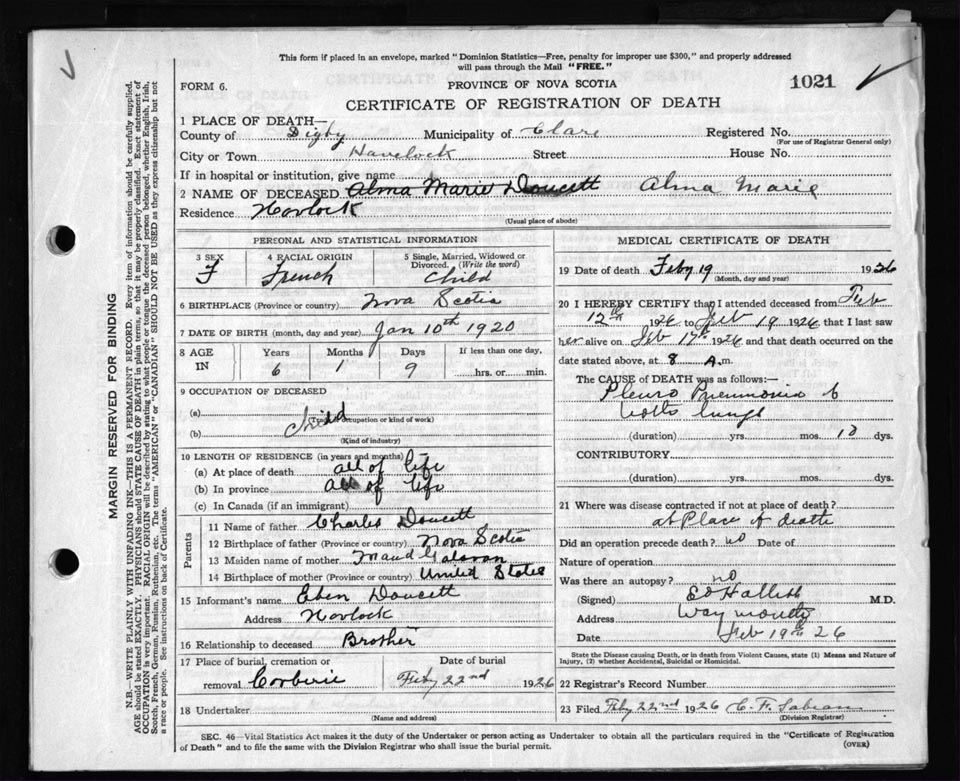 This form if placed in an envelope, marked "Dominion Statistics—Free, penalty for improper use $300," and properly addressed
will pass through the Mail "FREE."
FORM 6.
PROVINCE OF NOVA SCOTIA
1021
CERTIFICATE OF REGISTRATION OF DEATH
1 PLACE OF DEATH—
County of Digby Municipality of Clare Registered No.
(For use of Registrar General only)
City or Town Havelock Street House No.
If in hospital or institution, give name
2 NAME OF DECEASED Alma Marie Doucett Alma Marie
Residence Havlock
(Usual place of abode)
PERSONAL AND STATISTICAL INFORMATION
3 SEX F
4 RACIAL ORIGIN French
5 Single, Married, Widowed or Divorced. (Write the word) Child
6 BIRTHPLACE (Province or country) Nova Scotia
7 DATE OF BIRTH (month, day and year) Jan 10th 1920
8 AGE IN Years Months Days If less than one day,
6 1 9 hrs. or min.
9 OCCUPATION OF DECEASED
(a) (Occupation or kind of work)
(b) Child
(Kind of industry)
10 LENGTH OF RESIDENCE (in years and months)
(a) At place of death all of life
(b) In province all of life
(c) In Canada (if an immigrant)
Parents
11 Name of father Charles Doucett
12 Birthplace of father (Province or country) Nova Scotia
13 Maiden name of mother Maud
14 Birthplace of mother (Province or country) United States
15 Informant's name Eben Doucett
Address Havlock
16 Relationship to deceased Brother
17 Place of burial, cremation or removal Corberie
Date of burial Feby 22nd 1926
18 Undertaker
(Name and address)
MEDICAL CERTIFICATE OF DEATH
19 Date of death Feby 19 1926
(Month, day and year)
20 I HEREBY CERTIFY that I attended deceased from Feb
12th 1926 to Feb 19 1926 that I last saw
her alive on Feb 17th 1926 and that death occurred on the
date stated above, at 8 A.m.
The CAUSE OF DEATH was as follows:—
Pleuro Pneumonia
both lungs
(duration) yrs. mos. 10 dys.
CONTRIBUTORY
(duration) yrs. mos. dys.
21 Where was disease contracted if not at place of death?
at Place of death
Did an operation precede death? no Date of
Nature of operation
Was there an autopsy? no
(Signed) M.D.
Address Waymouth
Date Feb 19th 26
State the Disease causing Death, or in death from Violent Causes, state (1) Means and Nature of
Injury, (2) whether Accidental, Suicidal or Homicidal.
22 Registrar's Record Number
23 Filed Feby 22nd 1926
(Division Registrar)
SEC. 46—Vital Statistics Act makes it the duty of the Undertaker or person acting as Undertaker to obtain all the particulars required in the "Certificate of Registration
of Death" and to file the same with the Division Registrar who shall issue the burial permit. (OVER)
MARGIN RESERVED FOR BINDING
N.B.—WRITE PLAINLY WITH UNFADING INK—THIS IS A PERMANENT RECORD. Every item of information should be carefully supplied.
AGE should be stated EXACTLY. PHYSICIANS should STATE CAUSE OF DEATH in plain terms, so that it may be properly classified. Exact statement of
OCCUPATION is very important. RACIAL ORIGIN will be described by stating to what people or tongue the deceased person belonged, whether English, Irish,
Scotch, French, German, Russian, Ruthenian, etc. The terms "AMERICAN" or "CANADIAN" SHOULD NOT BE USED as they express citizenship but not
a race or people. See instructions on back of Certificate.